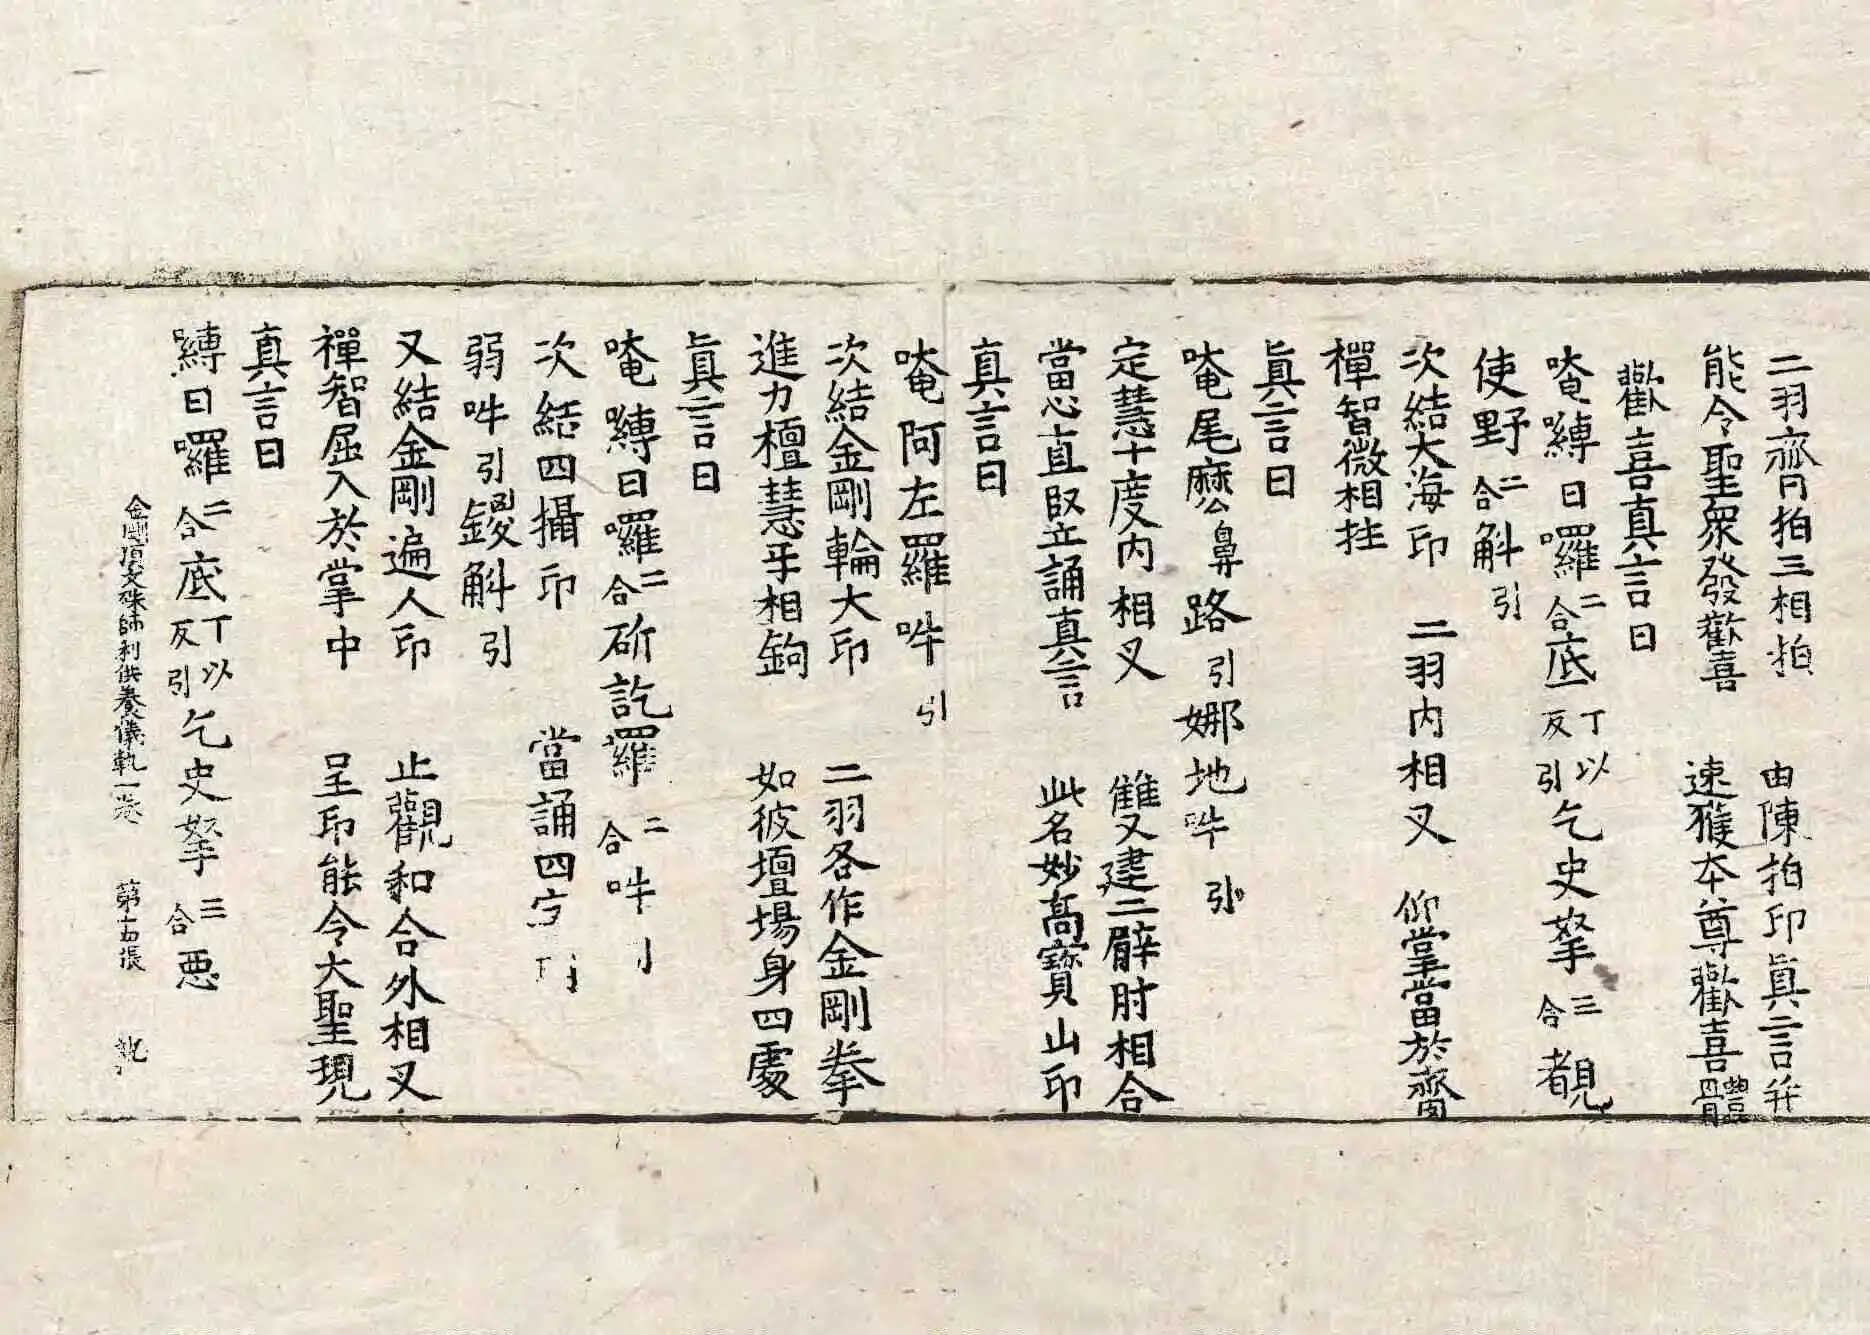 二羽齊拍三相拍　由陳拍印眞言并
能令聖衆發歡喜　速獲本尊歡喜體
歡喜真言曰
唵嚩日囉二合底丁以反引乞史拏三合覩
使野二合斛引
次結大海印　二羽内相叉　仰掌當於齊
禪智微相拄
眞言曰
唵尾麼鼻路引娜地吽引
定慧十度内相叉　雙建二臂肘相合
當心直竪立誦真言　此名妙高寶山印
真言曰
唵阿左羅吽引
次結金剛輪大印　二羽各作金剛拳
進力檀慧手相鉤　如彼壇場身四處
眞言曰
唵嚩日囉二合斫訖羅二合吽引
次結四攝印　當誦四字
弱吽引鑁斛引
又結金剛遍入印　止觀和合外相叉
禪智屈入於掌中　呈印能令大聖現
真言曰
嚩日囉二合底丁以反引乞史拏三合惡
金剛頂文殊師利供養儀軌一卷　第 張　執